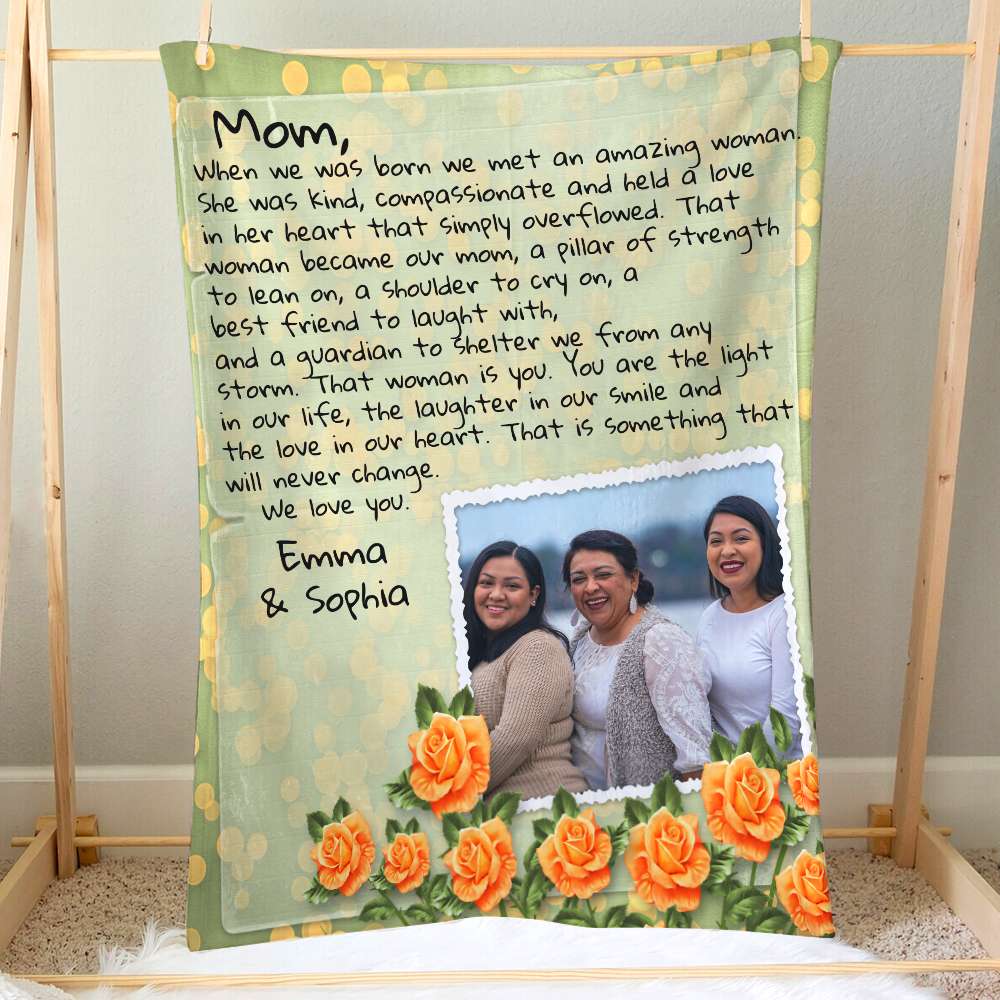 Mom,
When we was born we met an amazing woman.
She was kind, compassionate and held a love
in her heart that simply overflowed. That
woman became our mom, a pillar of strength
to lean on, a shoulder to cry on, a
best friend to laught with,
and a guardian to shelter we from any
storm. That woman is you. You are the light
in our life, the laughter in our smile and
the love in our heart. That is something that
will never change.
We love you.
Emma
& Sophia